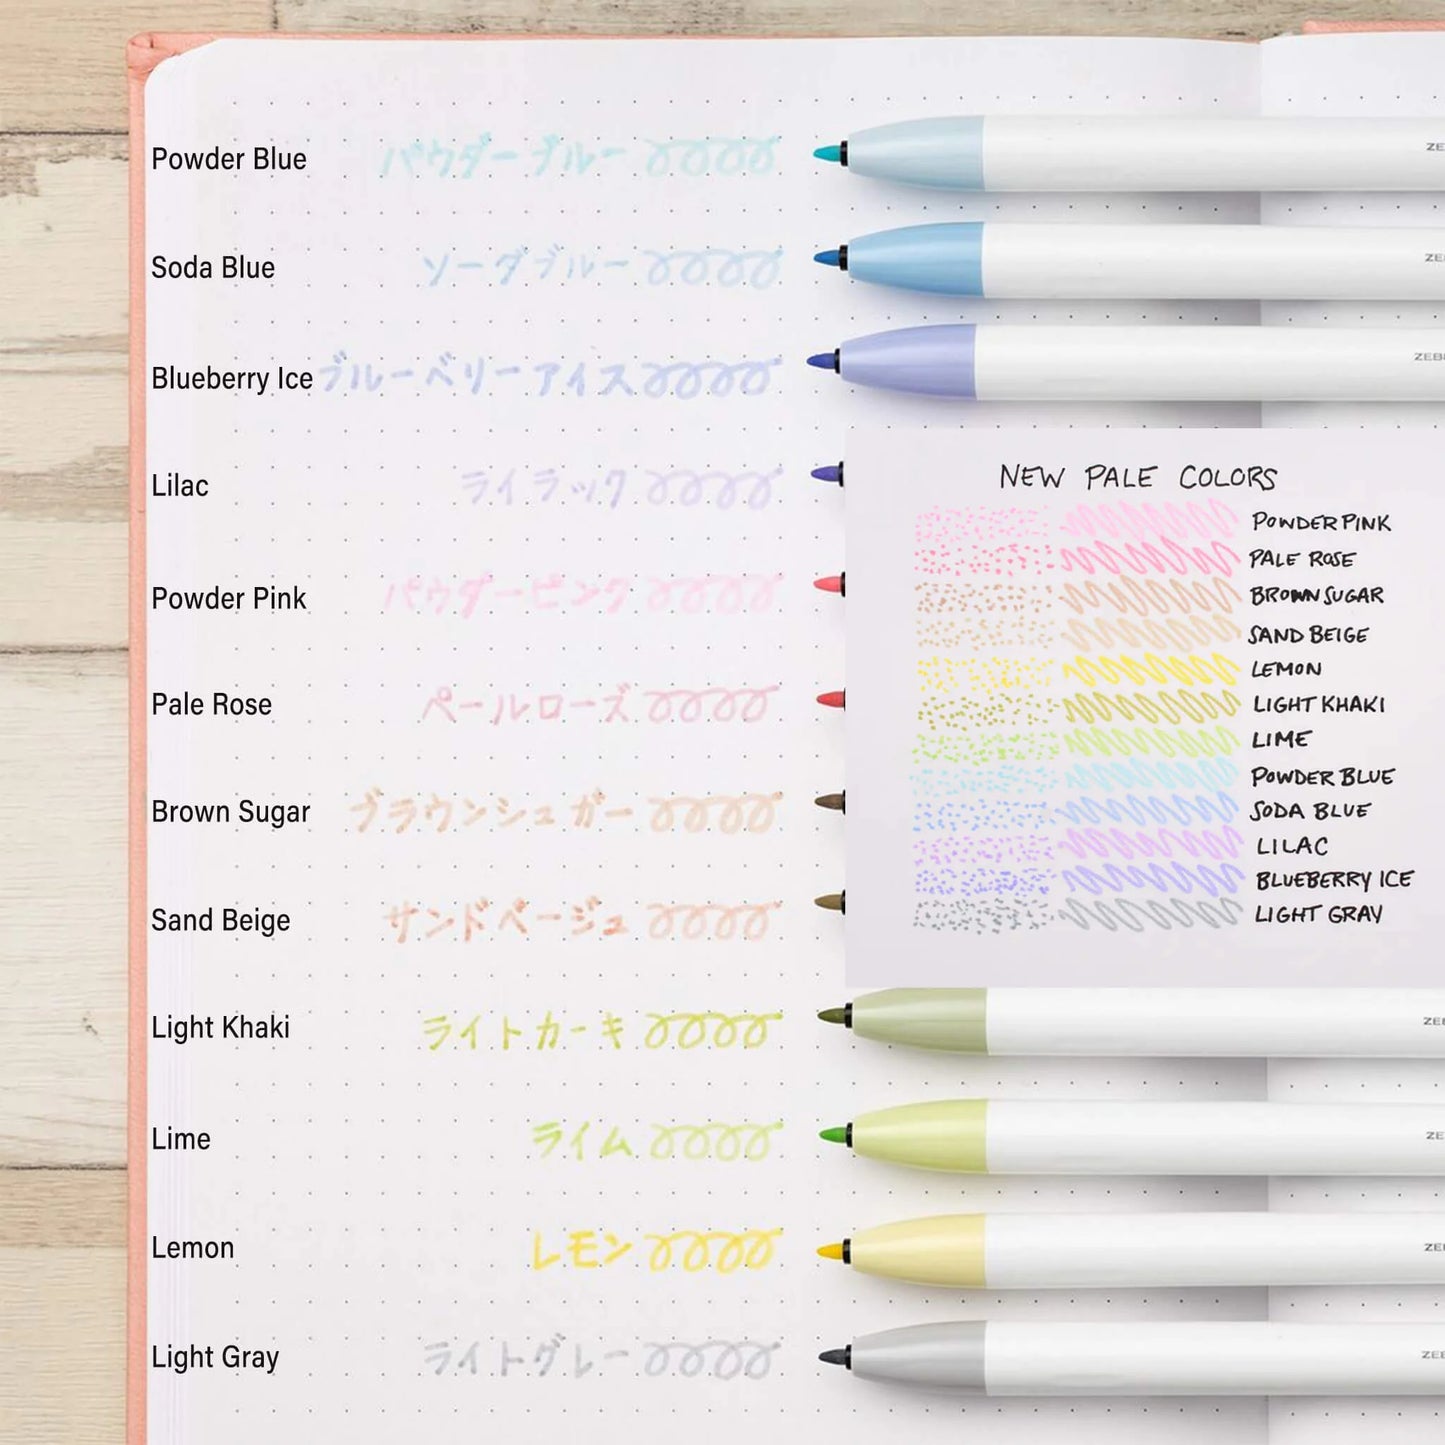 Powder Blue パウダーブルー ZE
Soda Blue ソーダブルー ZE
Blueberry Ice ブルーベリーアイス ZEB
Lilac ライラック
Powder Pink パウダーピンク
Pale Rose ペールローズ
Brown Sugar ブラウンシュガー
Sand Beige サンドベージュ
Light Khaki ライトカーキ ZE
Lime ライム ZE
Lemon レモン ZE
Light Gray ライトグレー ZE
NEW PALE COLORS
POWDER PINK
PALE ROSE
BROWN SUGAR
SAND BEIGE
LEMON
LIGHT KHAKI
LIME
POWDER BLUE
SODA BLUE
LILAC
BLUEBERRY ICE
LIGHT GRAY